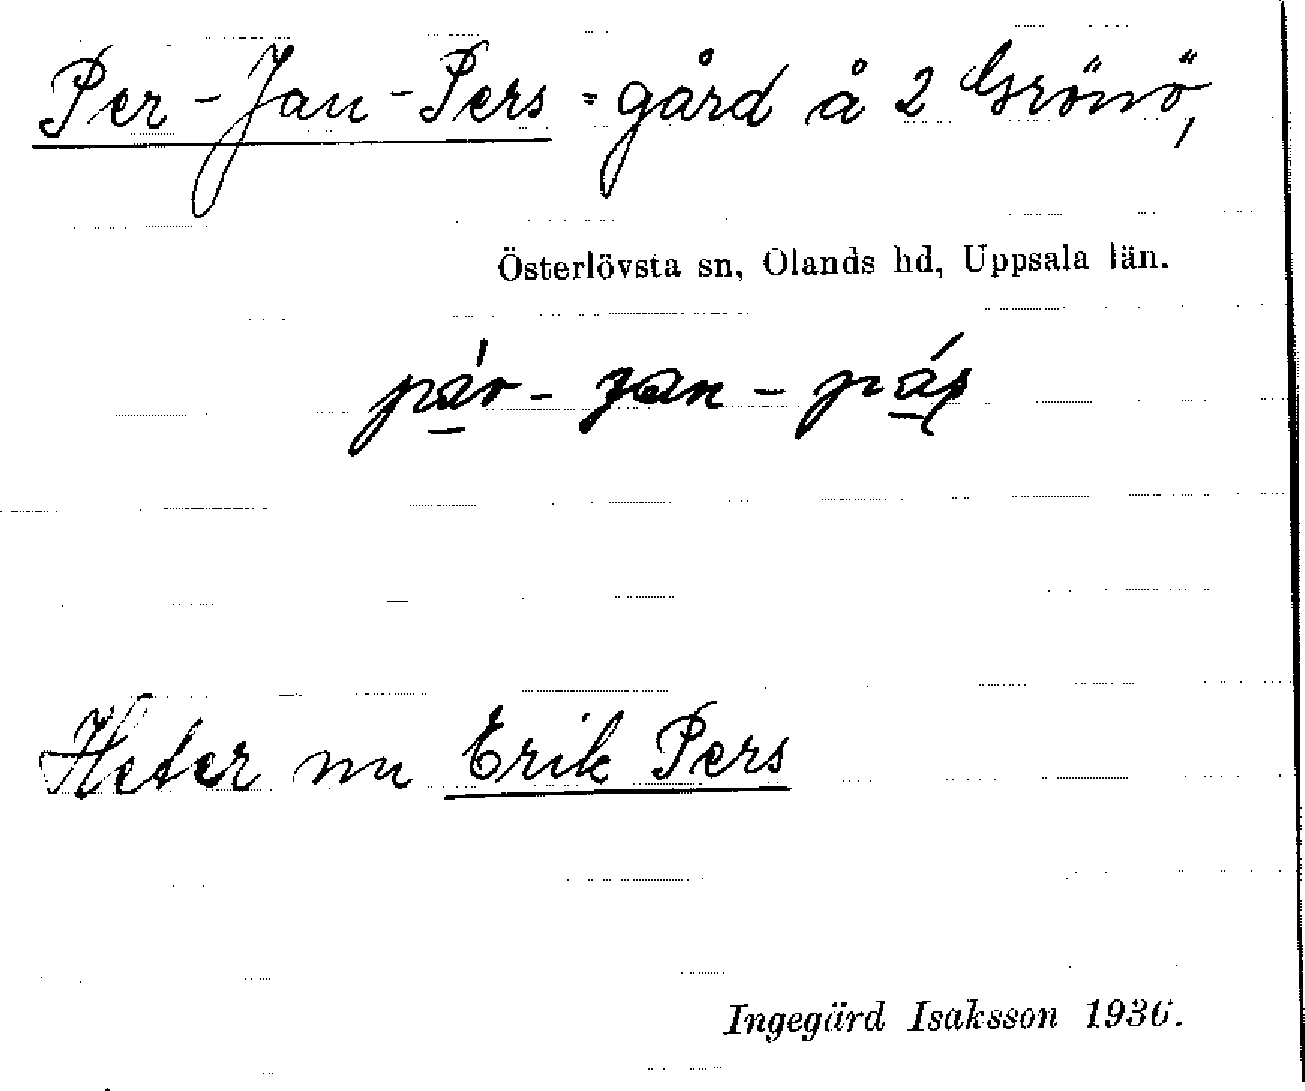 Per-Jan-Pers = gård å 2 Grönö,
Österlövsta sn, Olands hd, Uppsala län.
Heter nu Erik Pers
Ingegärd Isaksson 1936.